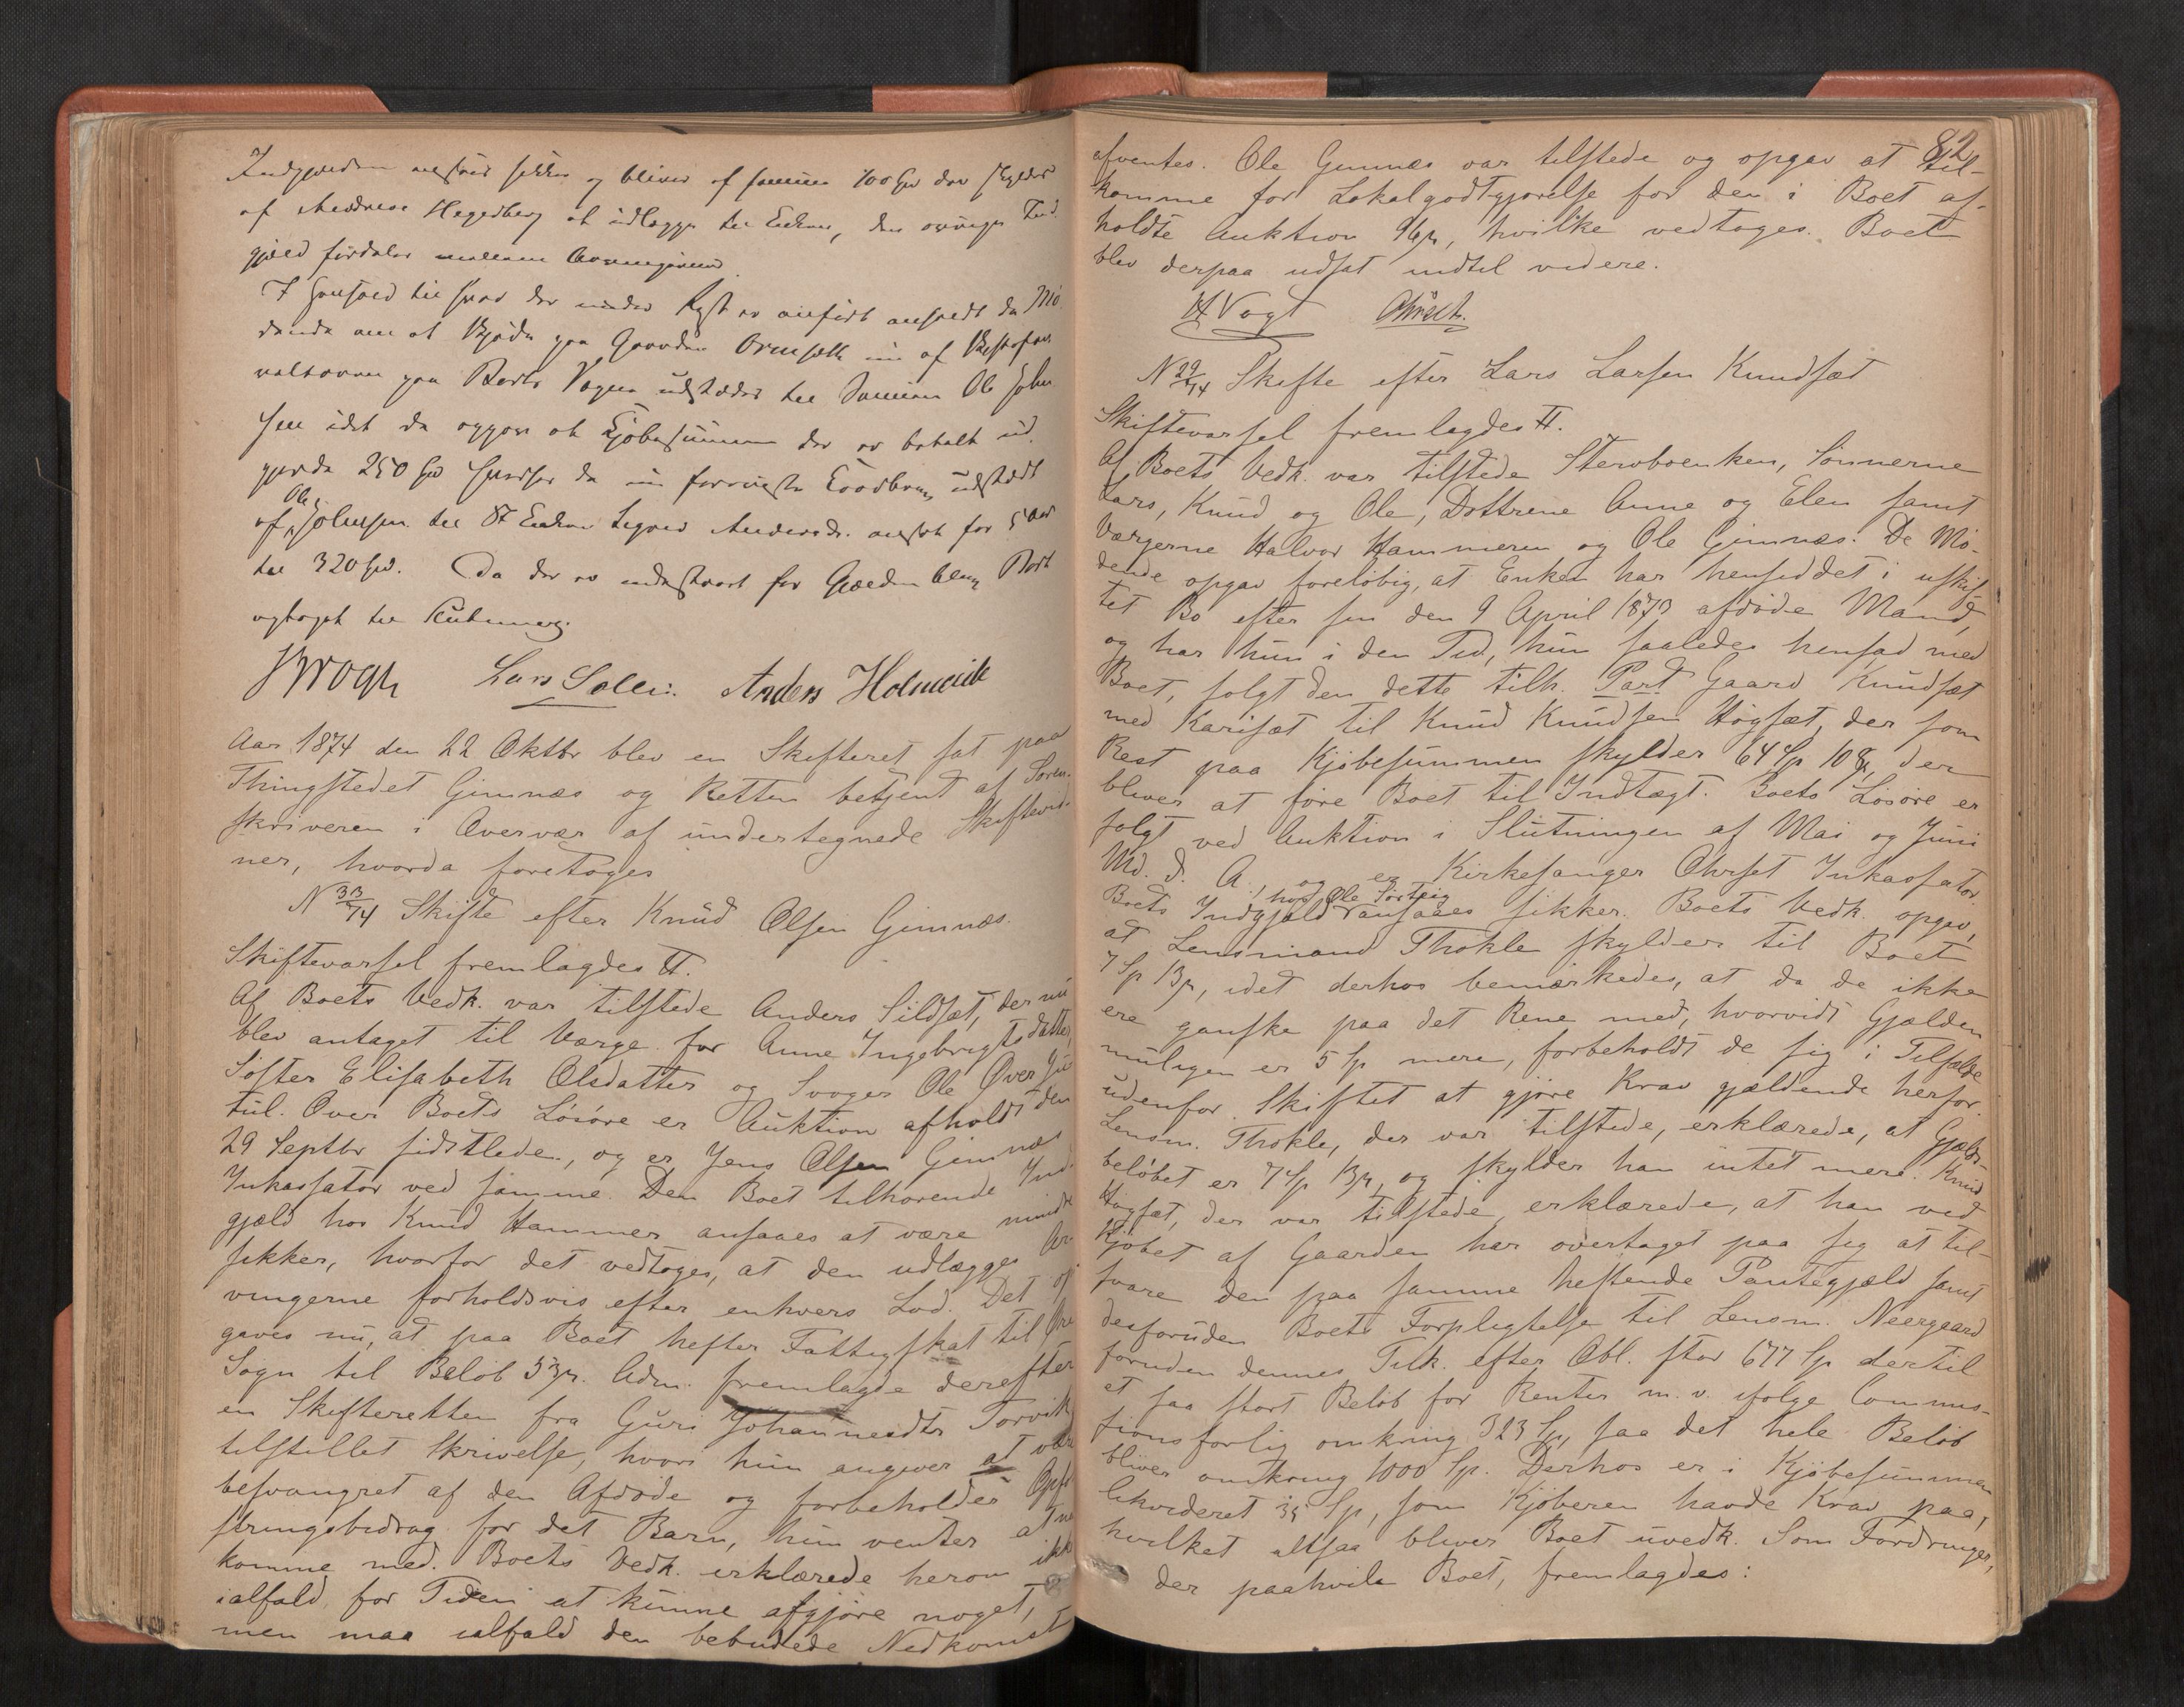 Indgjælden ansees sikker og bliver af samme 100 Spd der skyldes
af Andreas Hegedberg at udlægge til Enken, den øvrige Ind-
gjæld fordeles mellem Arvingerne.
I Henhold til hvad der under Regst er anført anholdt de Mø-
dende om at Skjøde paa Gaarden Ormsæth nu af
paa Boets Vegne udstædes til Sønnen Ole John-
sen idet de opgave at Kjøbesummen der er betalt ud-
gjorde 250 Spd hvorfor de nu forevist udstædt
af Ole Johnsen til Enken Sigrid Andersdr. ansat for 5 Aar
til 320 Spd. Da der er indestaaet for Gjælden blev Boet
optaget til Slutning.
Krogh Lars Sollie. Anders Holmeide
Aar 1874 den 22 Oktbr blev en Skifteret sat paa
Thingstedet Gimnæs og Retten betjent af Soren-
skriveren i Overvær af undertegnede Skiftevid-
ner, hvorda foretoges
N 33/74 Skifte efter Knud Olsen Gimnæs.
Skiftevarsel fremlagdes #.
Af Boets Vedk. var tilstede Anders Sildset, der nu
blev antaget til Værge for Anne Ingebrigtsdatter,
Søster Elisabeth Olsdatter og Svoger Ole Øver Ju-
tul. Over Boets Løsøre er Auktion afholdt den
29 Septbr sidstleden, og er Jens Olsen Gimnæs
Inkassator ved samme. Den Boet tilhørende Ind-
gjæld hos Knud Hammer ansaaes at være mindre
sikker, hvorfor det vedtoges, at den udlægges Ar-
vingerne forholdsvis efter enhvers Lod. Det op-
gaves nu, at paa Boet hefter Fattigskat til Øre
Sogn til Beløb 53 sk. Adm. fremlagde derefter
en Skifteretten fra Guri Johannesdtr Torvik
tilstillet Skrivelse, hvori hun angiver at være
besvangret af den Afdøde og forbeholdes Opfo-
stringsbidrag for det Barn, hun venter at ned-
komme med. Boets Vedk. erklærede herom ikke
ialfald for Tiden at kunne afgjøre noget,
men maa ialfald den bebudede Nedkomst
82
afventes. Ole Gimnæs var tilstede og opgav at til-
komme for Lokalgodtgjørelse for den i Boet af-
holdte Auktion 96 sk, hvilke vedtoges. Boet
blev derpaa udsat indtil videre.
H Vogt Ohrset.
N 29/74 Skifte efter Lars Larsen Knudsæt
Skiftevarsel fremlagdes #.
Af Boets Vedk. var tilstede Stervboenken, Sønnerne
Lars, Knud og Ole, Døttrene Anne og Elen samt
Værgerne Halvor Hammeren og Ole Gimnæs. De Mø-
dende opgav foreløbig, at Enken har hensiddet i uskif-
tet Bo efter sin den 9 April 1873 afdøde Mand,
og har hun i den Tid, hun saaledes hensad med
Boet, solgt den dette tilh. Part Gaard Knudsæt
med Karisæt til Knud Knudsen Høgsæt, der som
Rest paa Kjøbesummen skylder 64 Sp 108 sk, der
bliver at føre Boet til Indtægt. Boets Løsøre er
solgt ved Auktion i Slutningen af Mai og Juni
Md. d. A., og er Kirkesanger Ohrset Inkassator.
Boets Indgjæld hos Ole Sørteig ansaaes sikker. Boets Vedk. opgav,
at Lensmand Thokle skylder til Boet
7 Sp 13 sk, idet derhos bemærkedes, at da de ikke
ere ganske paa det Rene med, hvorvidt Gjælden
muligen er 5 Sp mere, forbeholdt de sig i Tilfælde
udenfor Skiftet at gjøre Krav gjældende herfor.
Lensm. Thokle, der var tilstede, erklærede, at Gjælds-
beløbet er 7 Sp 13 sk, og skylder han intet mere. Knud
Høgsæt, der var tilstede, erklærede, at han ved
Kjøbet af Gaarden har overtaget paa sig at til-
svare den paa samme heftende Pantegjæld samt
desforuden Boets Forpligtelse til Lensm. Neergaard
foruden dennes Tilk. efter Obl. stor 677 Sp dertil
et saa stort Beløb for Renter m. v. ifølge Commis-
sionsforlig omkring 323 Sp, saa det hele Beløb
bliver omkring 1000 Sp. Derhos er i Kjøbesummen
likvideret 35 Sp, som Kjøberen havde Krav paa,
hvilket altsaa bliver Boet uvedk. Som Fordringer,
der paahvile Boet, fremlagdes: